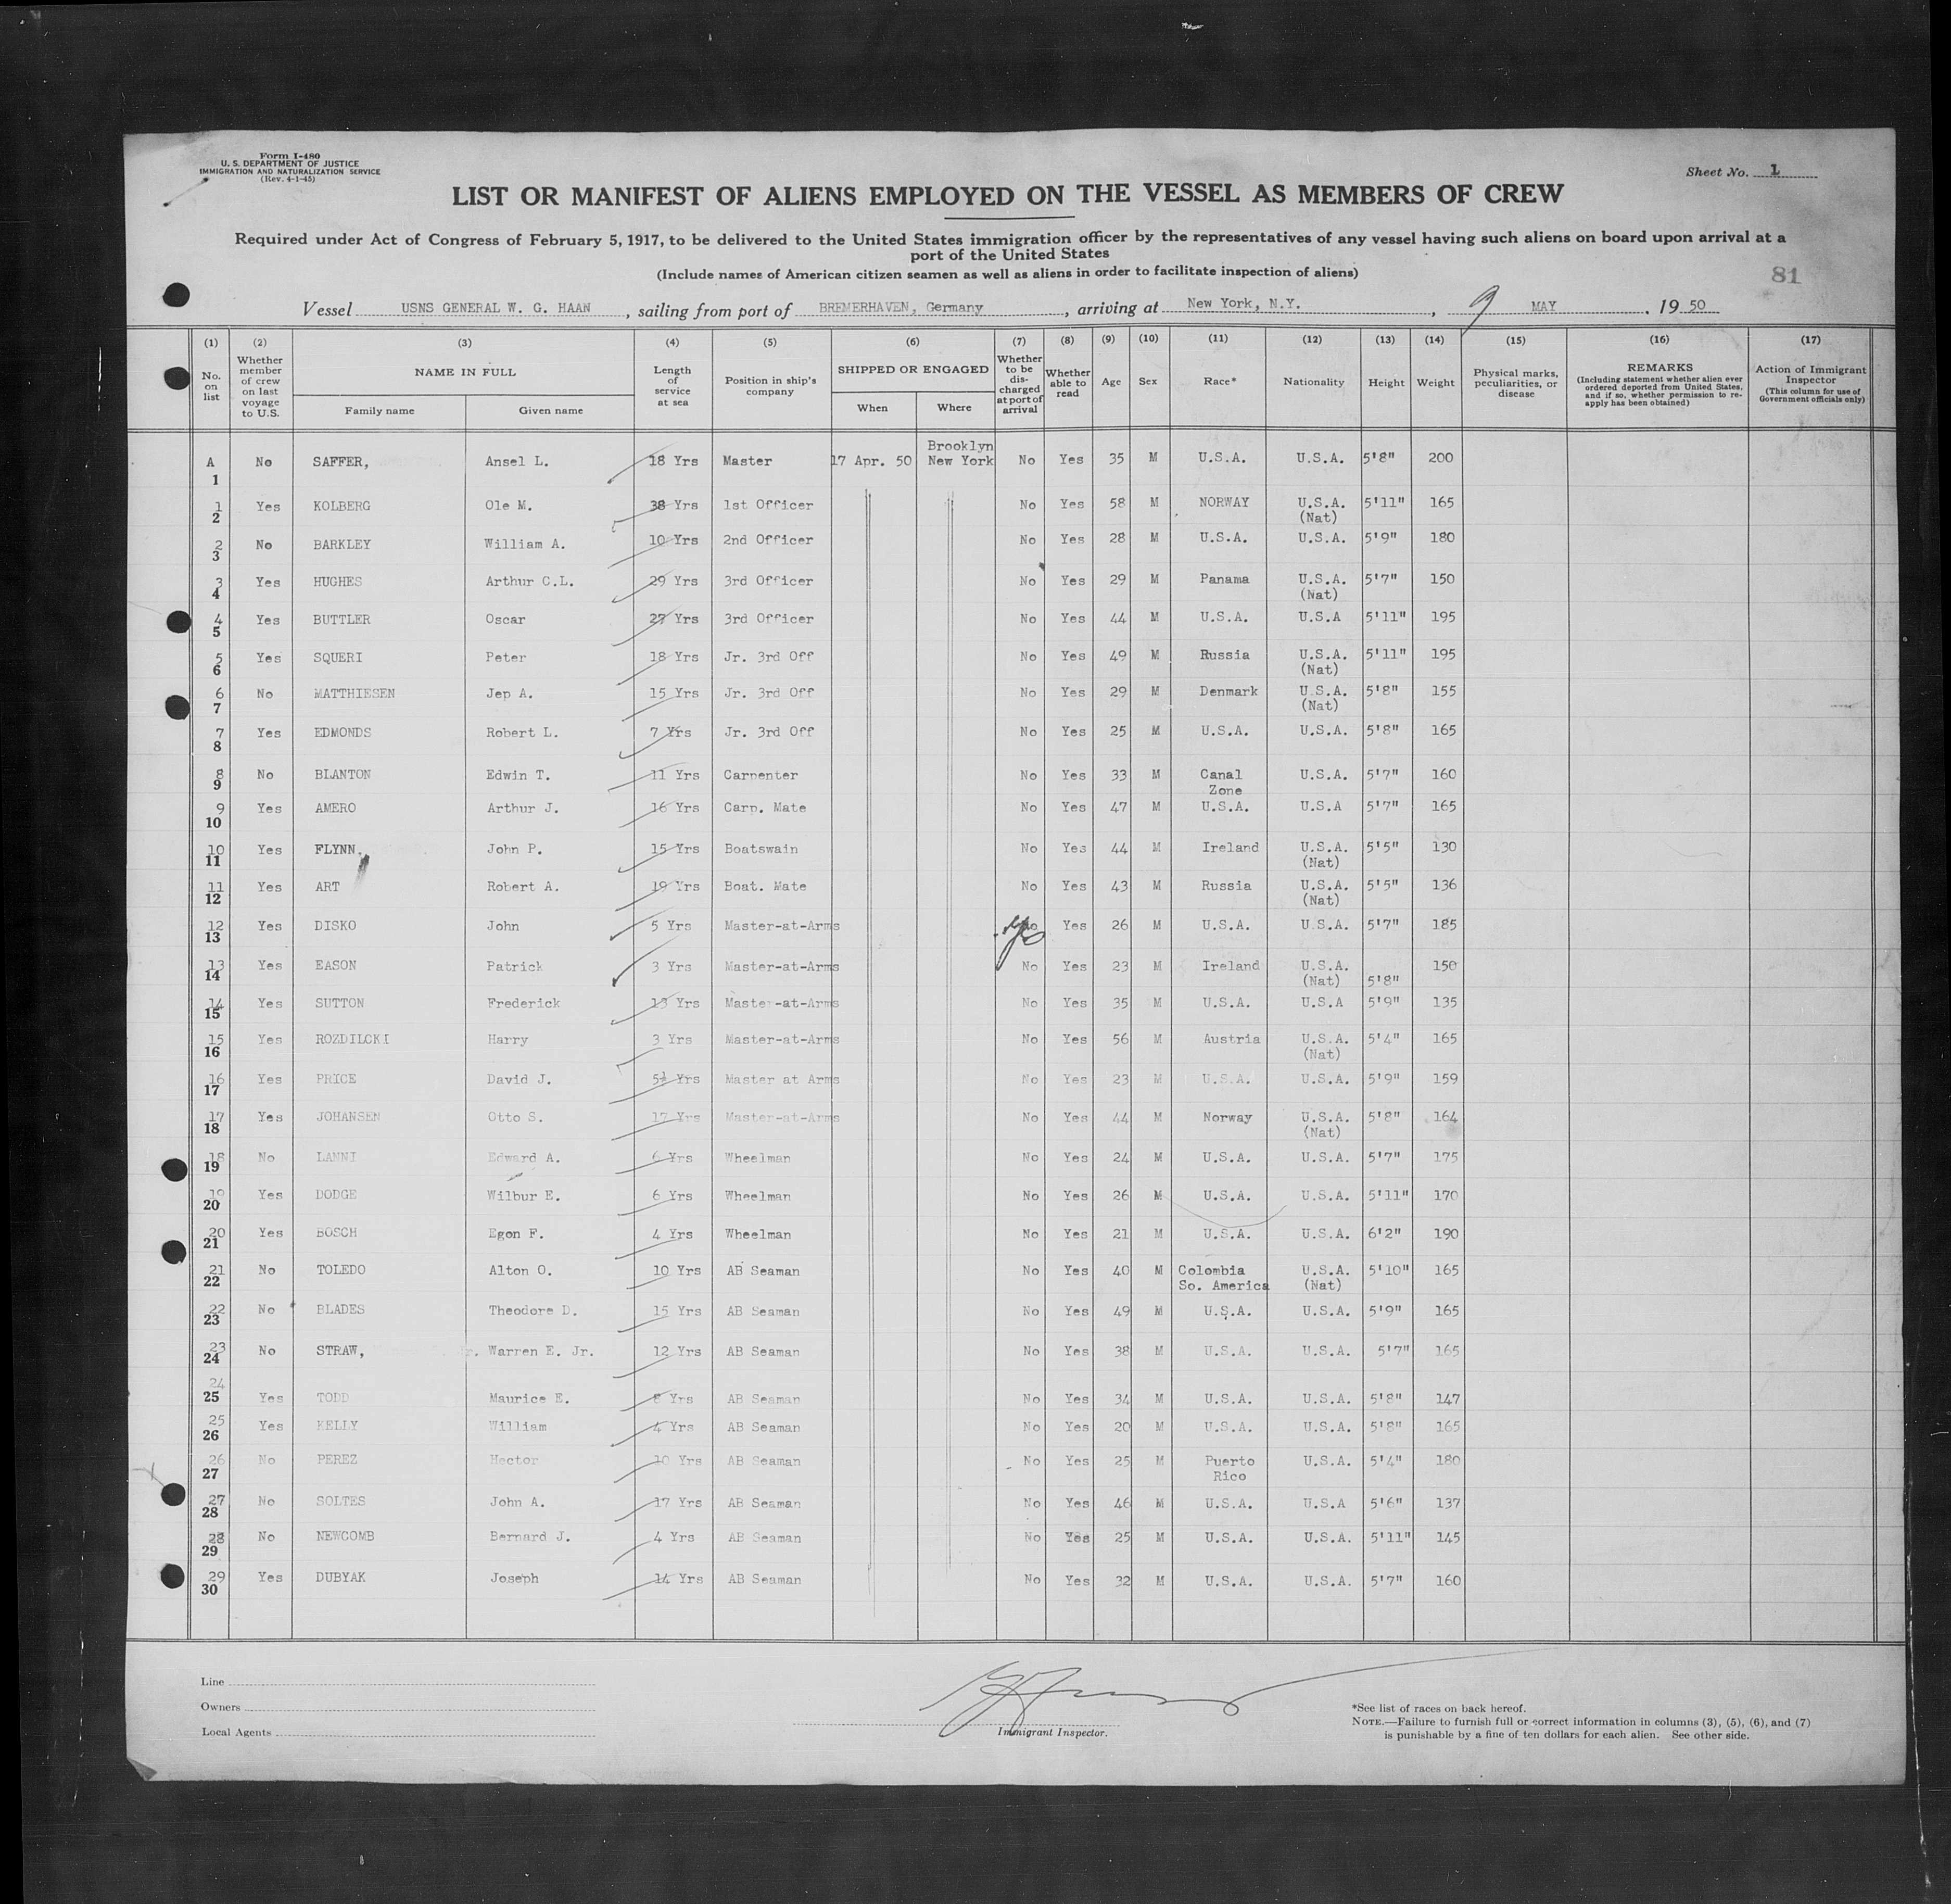 Form I-480
U. S. DEPARTMENT OF JUSTICE
IMMIGRATION AND NATURALIZATION SERVICE
(Rev. 4-1-45)
Sheet No. 1
LIST OR MANIFEST OF ALIENS EMPLOYED ON THE VESSEL AS MEMBERS OF CREW
Required under Act of Congress of February 5, 1917, to be delivered to the United States immigration officer by the representatives of any vessel having such aliens on board upon arrival at a
port of the United States
(Include names of American citizen seamen as well as aliens in order to facilitate inspection of aliens)
81
Vessel USNS GENERAL W. G. HAAN, sailing from port of BREMERHAVEN, Germany, arriving at New York, N.Y., 9 MAY, 19 50
(1) (2) (3) (4) (5) (6) (7) (8) (9) (10) (11) (12) (13) (14) (15) (16) (17)
No. on list
Whether member of crew on last voyage to U.S.
NAME IN FULL
Family name Given name
Length of service at sea
Position in ship's company
SHIPPED OR ENGAGED
When Where
Whether to be discharged at port of arrival
Whether able to read
Age
Sex
Race*
Nationality
Height
Weight
Physical marks, peculiarities, or disease
REMARKS
(Including statement whether alien ever ordered deported from United States, and if so, whether permission to re-apply has been obtained)
Action of Immigrant Inspector
(This column for use of Government officials only)
A 1 No SAFFER, Ansel L. 18 Yrs Master 17 Apr. 50 Brooklyn New York No Yes 35 M U.S.A. U.S.A. 5'8" 200
1 2 Yes KOLBERG Ole M. 38 Yrs 1st Officer No Yes 58 M NORWAY U.S.A. (Nat) 5'11" 165
2 3 No BARKLEY William A. 10 Yrs 2nd Officer No Yes 28 M U.S.A. U.S.A. 5'9" 180
3 4 Yes HUGHES Arthur C.L. 29 Yrs 3rd Officer No Yes 29 M Panama U.S.A. (Nat) 5'7" 150
4 5 Yes BUTTLER Oscar 27 Yrs 3rd Officer No Yes 44 M U.S.A. U.S.A 5'11" 195
5 6 Yes SQUERI Peter 18 Yrs Jr. 3rd Off No Yes 49 M Russia U.S.A. (Nat) 5'11" 195
6 7 No MATTHIESEN Jep A. 15 Yrs Jr. 3rd Off No Yes 29 M Denmark U.S.A. (Nat) 5'8" 155
7 8 Yes EDMONDS Robert L. 7 Yrs Jr. 3rd Off No Yes 25 M U.S.A. U.S.A. 5'8" 165
8 9 No BLANTON Edwin T. 11 Yrs Carpenter No Yes 33 M Canal Zone U.S.A. 5'7" 160
9 10 Yes AMERO Arthur J. 16 Yrs Carp. Mate No Yes 47 M U.S.A. U.S.A 5'7" 165
10 11 Yes FLYNN, John P. 15 Yrs Boatswain No Yes 44 M Ireland U.S.A. (Nat) 5'5" 130
11 12 Yes ART Robert A. 19 Yrs Boat. Mate No Yes 43 M Russia U.S.A. (Nat) 5'5" 136
12 13 Yes DISKO John 5 Yrs Master-at-Arms Yes 26 M U.S.A. U.S.A. 5'7" 185
13 14 Yes EASON Patrick 3 Yrs Master-at-Arms No Yes 23 M Ireland U.S.A. (Nat) 5'8" 150
14 15 Yes SUTTON Frederick 13 Yrs Master-at-Arms No Yes 35 M U.S.A. U.S.A 5'9" 135
15 16 Yes ROZDILCKI Harry 3 Yrs Master-at-Arms No Yes 56 M Austria U.S.A. (Nat) 5'4" 165
16 17 Yes PRICE David J. 5½ Yrs Master at Arms No Yes 23 M U.S.A. U.S.A. 5'9" 159
17 18 Yes JOHANSEN Otto S. 17 Yrs Master-at-Arms No Yes 44 M Norway U.S.A. (Nat) 5'8" 164
18 19 No LANNI Edward A. 6 Yrs Wheelman No Yes 24 M U.S.A. U.S.A. 5'7" 175
19 20 Yes DODGE Wilbur E. 6 Yrs Wheelman No Yes 26 M U.S.A. U.S.A. 5'11" 170
20 21 Yes BOSCH Egon F. 4 Yrs Wheelman No Yes 21 M U.S.A. U.S.A. 6'2" 190
21 22 No TOLEDO Alton O. 10 Yrs AB Seaman No Yes 40 M Colombia So. America U.S.A. (Nat) 5'10" 165
22 23 No BLADES Theodore D. 15 Yrs AB Seaman No Yes 49 M U.S.A. U.S.A. 5'9" 165
23 24 No STRAW, Warren E. Jr. 12 Yrs AB Seaman No Yes 38 M U.S.A. U.S.A. 5'7" 165
24 25 Yes TODD Maurice E. 8 Yrs AB Seaman No Yes 34 M U.S.A. U.S.A. 5'8" 147
25 26 Yes KELLY William 4 Yrs AB Seaman No Yes 20 M U.S.A. U.S.A. 5'8" 165
26 27 No PEREZ Hector 10 Yrs AB Seaman No Yes 25 M Puerto Rico U.S.A. 5'4" 180
27 28 No SOLTES John A. 17 Yrs AB Seaman No Yes 46 M U.S.A. U.S.A 5'6" 137
28 29 No NEWCOMB Bernard J. 4 Yrs AB Seaman No Yes 25 M U.S.A. U.S.A. 5'11" 145
29 30 Yes DUBYAK Joseph 14 Yrs AB Seaman No Yes 32 M U.S.A. U.S.A. 5'7" 160
Line
Owners
Local Agents
Immigrant Inspector.
*See list of races on back hereof.
NOTE.—Failure to furnish full or correct information in columns (3), (5), (6), and (7)
is punishable by a fine of ten dollars for each alien. See other side.